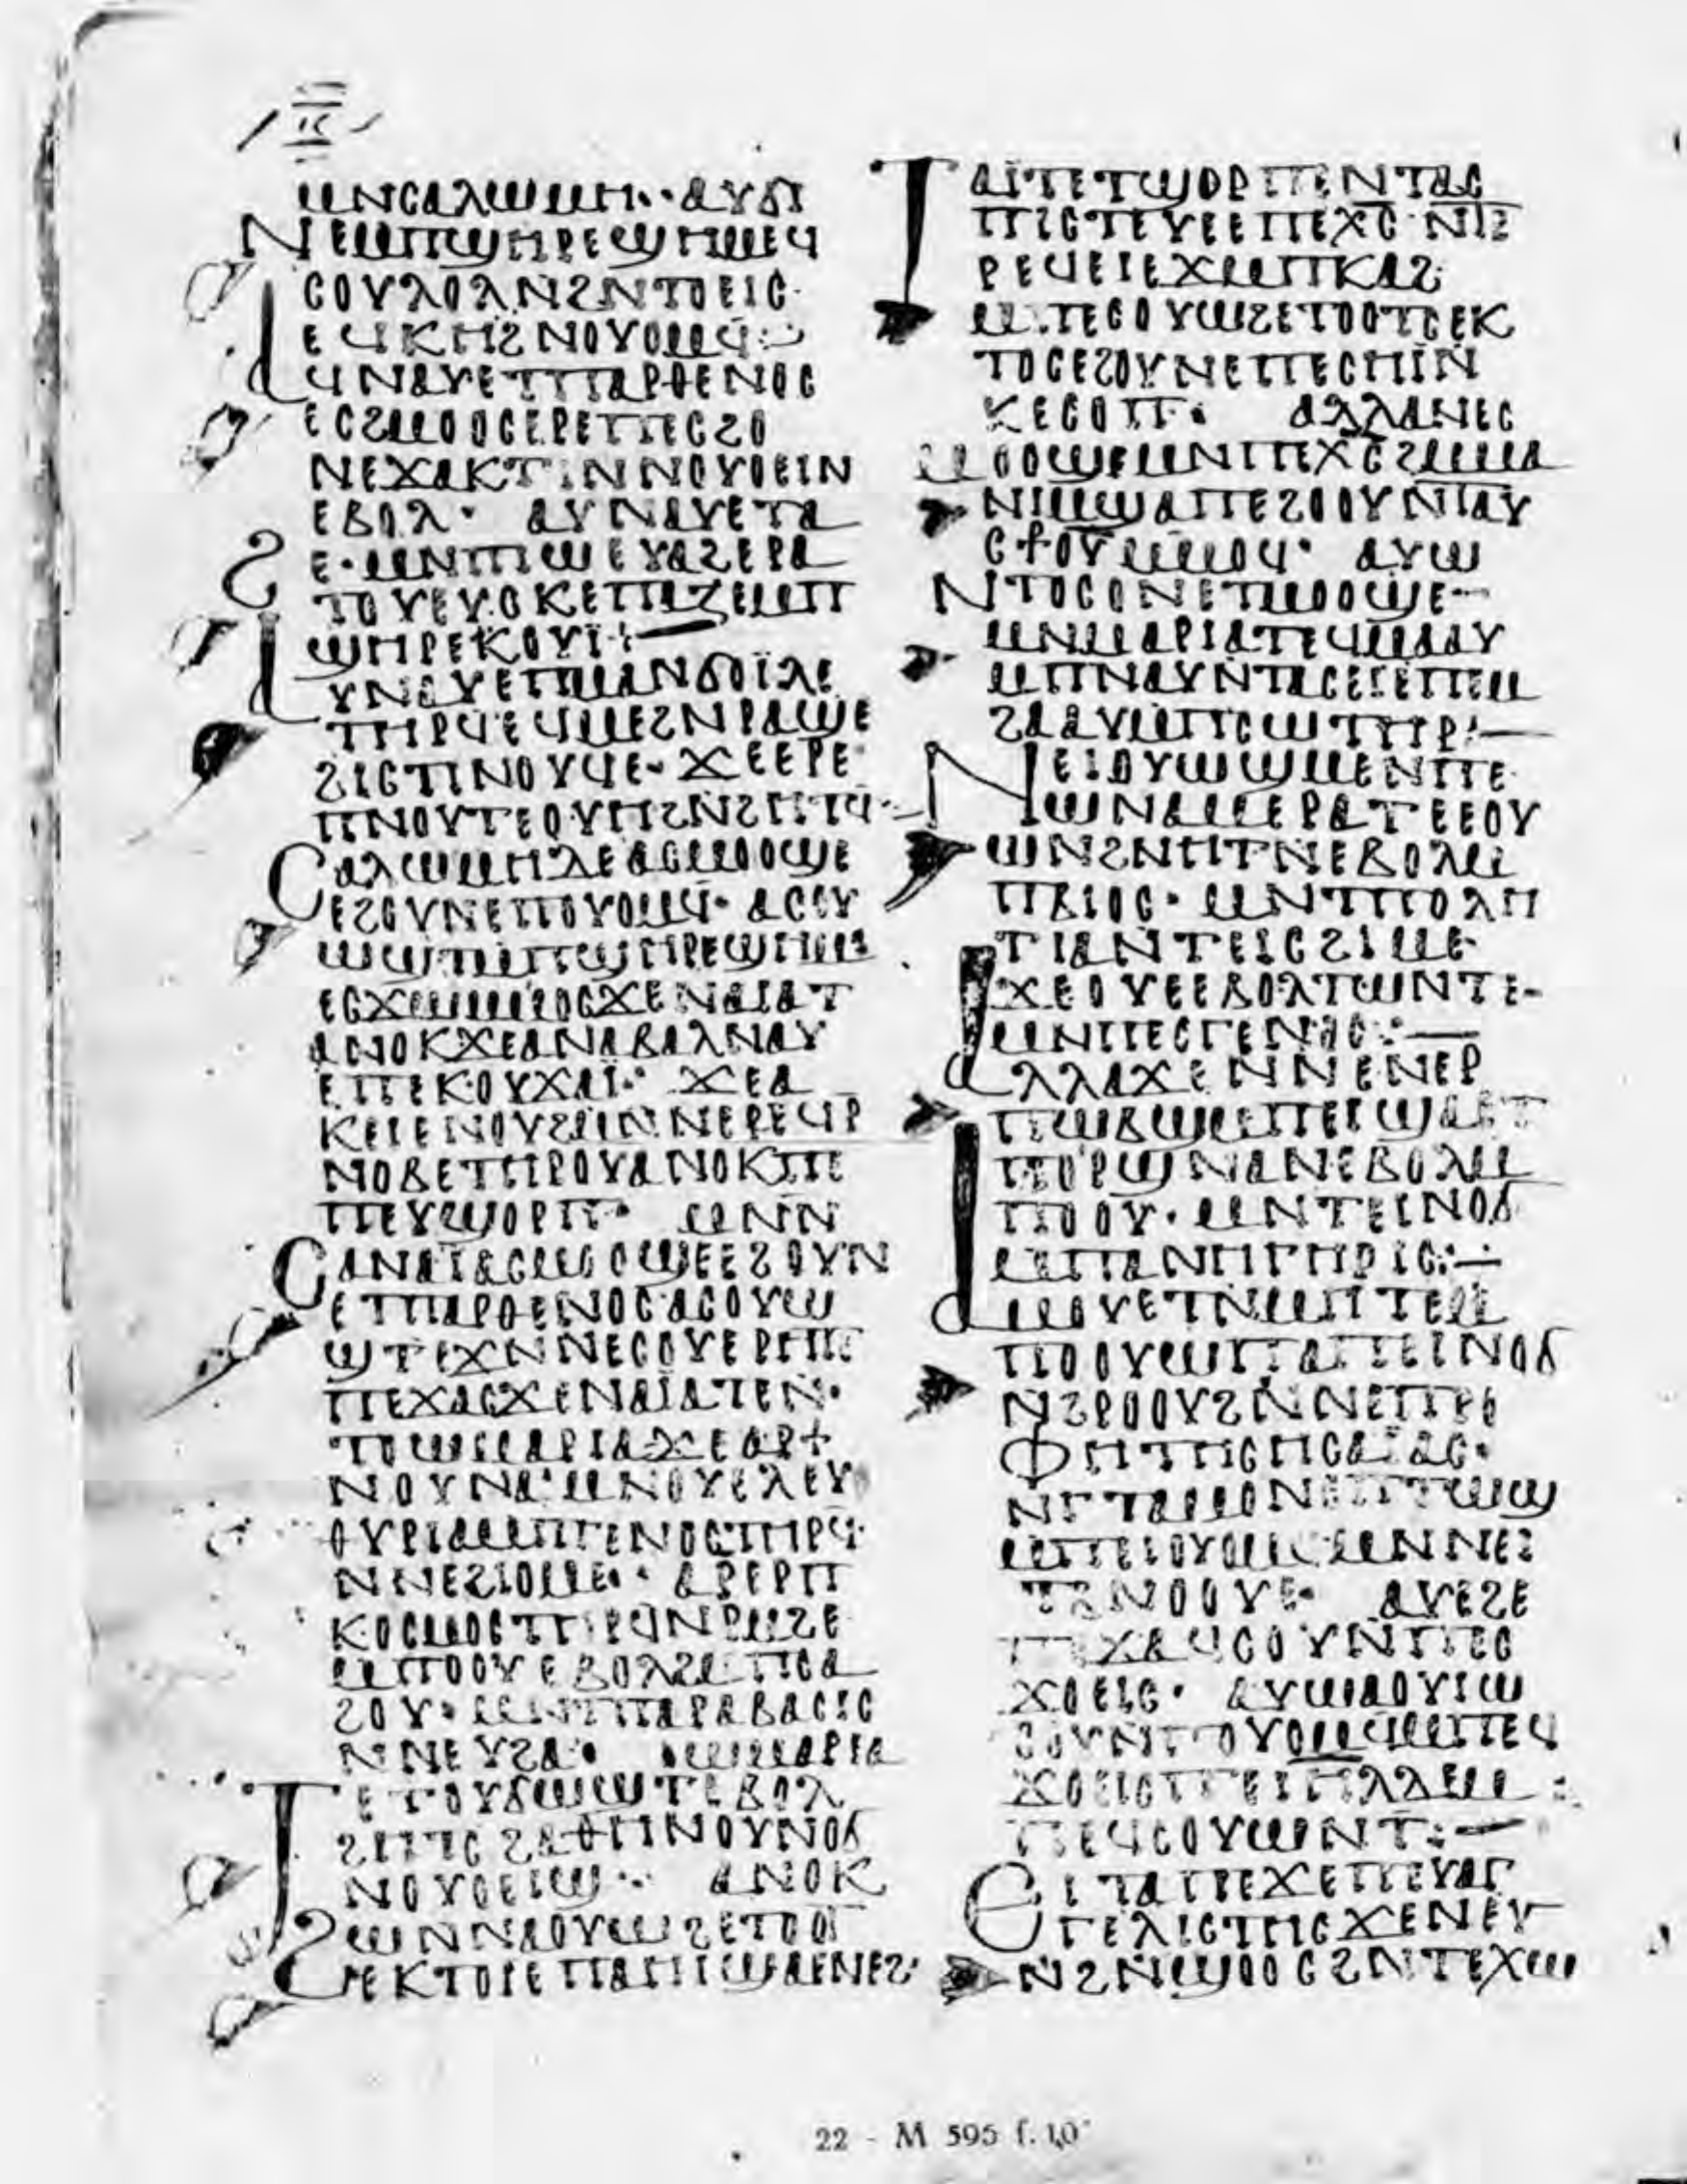 ⲙⲛⲥⲁⲗⲱⲙⲏ· ⲁⲩϭⲓ
ⲛⲉⲙⲡϣⲏⲣⲉϣⲏⲙⲉϥ
ϭⲟⲩⲗⲟⲗⲛϩⲛⲧⲟⲉⲓⲥ·
ⲉϥⲕⲏϩⲛⲟⲩⲟⲙϥ·
ⲁϥⲛⲁⲩⲉⲧⲡⲁⲣⲑⲉⲛⲟⲥ
ⲉⲥϩⲙⲟⲟⲥⲉⲣⲉⲡⲉⲥϩⲟ
ⲛⲉϫⲁⲕⲧⲓⲛⲛⲟⲩⲟⲉⲓⲛ
ⲉⲃⲟⲗ· ⲁⲩⲛⲁⲩⲉⲧⲁ
ϩⲉ·ⲙⲛⲡⲓⲱ ⲉⲩⲁϩⲉⲣⲁ
ⲧⲟⲩ
ϣⲏⲣⲉⲕⲟⲩⲓ
ⲁⲩⲛⲁⲩⲉⲡⲙⲁⲛϭⲟⲓⲗⲉ
ⲧⲏⲣϥⲉϥⲙⲉϩⲛⲣⲁϣⲉ
ϩⲓⲥϯⲛⲟⲩϥⲉ· ϫⲉⲉⲣⲉ
ⲡⲛⲟⲩⲧⲉⲟⲩⲏϩⲛϩⲏⲧϥ
ⲥⲁⲗⲱⲙⲏⲇⲉⲁⲥⲙⲟⲟϣⲉ
ⲉϩⲟⲩⲛⲉⲡⲟⲩⲟⲙϥ· ⲁⲥⲟⲩ
ⲱϣⲧⲙⲡϣⲏⲣⲉϣⲏⲙ
ⲉⲥϫⲱⲙⲙⲟⲥϫⲉⲛⲁⲓⲁⲧ
ⲁⲛⲟⲕϫⲉⲁⲛⲁⲃⲁⲗⲛⲁⲩ
ⲉⲡⲉⲕⲟⲩϫⲁⲓ· ϫⲉⲁ
ⲕⲉⲓⲉⲛⲟⲩϩⲙⲛⲛⲉⲣⲉϥⲣ
ⲛⲟⲃⲉⲧⲏⲣⲟⲩⲁⲛⲟⲕⲡⲉ
ⲡⲉⲩϣⲟⲣⲡ· ⲙⲛⲛ
ⲥⲁⲛⲁⲓⲁⲥⲙⲟⲟϣⲉⲉϩⲟⲩⲛ
ⲉⲧⲡⲁⲣⲑⲉⲛⲟⲥⲁⲥⲟⲩⲱ
ϣⲧⲉϫⲛⲛⲉⲥⲟⲩⲉⲣⲏⲧⲉ
ⲡⲉϫⲁⲥϫⲉⲛⲁⲓⲁⲧⲉⲛ·
ⲧⲟⲱⲙⲁⲣⲓⲁϫⲉⲁⲣϯ
ⲛⲟⲩⲛⲁ·ⲙⲛⲟⲩⲉⲗⲉⲩ
ⲑⲩⲣⲓⲁⲙⲡⲅⲉⲛⲟⲥⲧⲏⲣϥ
ⲛⲛⲉϩⲓⲟⲙⲉ· ⲁⲣⲉⲣⲡ
ⲕⲟⲥⲙⲟⲥⲧⲏⲣϥⲛⲣⲙϩⲉ
ⲙⲡⲟⲟⲩ ⲉⲃⲟⲗϩⲙⲡⲥⲁ
ϩⲟⲩ· ⲙⲛⲧⲡⲁⲣⲁⲃⲁⲥⲓⲥ
ⲛⲛⲉⲩϩⲁ· ⲱⲙⲁⲣⲓⲁ
ⲧⲉⲧⲟⲩϭⲱϣⲧⲉⲃⲟⲗ
ϩⲏⲧⲥ ϩⲁⲑⲏⲛⲟⲩⲛⲟϭ
ⲛⲟⲩⲟⲉⲓϣ· ⲁⲛⲟⲕ
ϩⲱⲛⲛⲁⲟⲩⲱϩⲉⲧⲟⲟⲧ
ⲉⲕⲧⲟⲓⲉⲡⲁⲏⲓϣⲁⲉⲛⲉϩ·
ⲧⲁⲓⲧⲉⲧϣⲟⲣⲡⲉⲛⲧⲁⲥ
ⲡⲓⲥⲧⲉⲩⲉⲉⲡⲉⲭⲥ·ⲛⲧⲉ
ⲣⲉϥⲉⲓⲉϫⲙⲡⲕⲁϩ·
ⲙⲡⲉⲥⲟⲩⲱϩⲉⲧⲟⲟⲧⲥⲉⲕ
ⲧⲟⲥⲉϩⲟⲩⲛⲉⲡⲉⲥⲏⲓⲛ
ⲕⲉⲥⲟⲡ· ⲁⲗⲗⲁⲛⲉⲥ
ⲙⲟⲟϣⲉⲙⲛⲡⲉⲭⲥϩⲙⲙⲁ
ⲛⲓⲙϣⲁⲡⲉϩⲟⲟⲩⲛⲧⲁⲩ
ⲥϯⲟⲩⲙⲙⲟϥ· ⲁⲩⲱ
ⲛⲧⲟⲥⲟⲛⲉⲧⲙⲟⲟϣⲉ
ⲙⲛⲙⲁⲣⲓⲁⲧⲉϥⲙⲁⲁⲩ
ⲙⲡⲛⲁⲩⲛⲧⲁⲥⲉⲓⲉⲡⲉⲙ
ϩⲁⲁⲩⲙⲡⲥⲱⲧⲏⲣ
ⲛⲉⲓⲟⲩⲱϣⲙⲉⲛⲡⲉ
ⲱⲛⲁⲙⲉⲣⲁⲧⲉⲉⲟⲩ
ⲱⲛⲛϩⲏⲧⲛⲉⲃⲟⲗⲙ
ⲡⲃⲓⲟⲥ· ⲙⲛⲧⲡⲟⲗⲏ
ⲧⲓⲁⲛⲧⲉⲓⲥϩⲓⲙⲉ
ϫⲉⲟⲩⲉⲉⲃⲟⲗⲧⲱⲛⲧⲉ
ⲙⲛⲡⲉⲥⲅⲉⲛⲟⲥ
ⲁⲗⲗⲁϫⲉⲛⲛⲉⲛⲉⲣ
ⲡⲱⲃϣⲙⲡⲉⲓϣⲁⲉⲧ
ⲡⲟⲣϣⲛⲁⲛⲉⲃⲟⲗⲙ
ⲡⲟⲟⲩ· ⲙⲛⲧⲉⲓⲛⲟϭ
ⲙⲡⲁⲛⲏⲅⲏⲣⲓⲥ
ⲁⲙⲟⲩⲉⲧⲛⲙⲏⲧⲉⲙ
ⲡⲟⲟⲩⲱⲡⲁⲡⲉⲓⲛⲟϭ
ⲛϩⲣⲟⲟⲩϩⲛⲛⲉⲡⲣⲟ
ⲫⲏⲧⲏⲥⲏⲥⲁⲓⲁⲥ·
ⲛⲅⲧⲁⲙⲟⲛⲉⲡⲧⲱϣ
ⲙⲡⲉⲓⲟⲩⲟⲙϥⲙⲛⲛⲉⲓ
ⲧⲃⲛⲟⲟⲩⲉ· ⲁⲩⲉϩⲉ
ⲡⲉϫⲁϥⲥⲟⲩⲛⲡⲉⲥ
ϫⲟⲉⲓⲥ· ⲁⲩⲱⲁⲟⲩⲓⲱ
ⲥⲟⲩⲛⲡⲟⲩⲟⲙϥⲙⲡⲉϥ
ϫⲟⲉⲓⲥⲡⲉⲓⲥⲣⲁⲏⲗⲇⲉⲙ
ⲡⲉϥⲥⲟⲩⲱⲛⲧ
ⲉⲓⲧⲁⲡⲉϫⲉⲡⲉⲩⲁⲅ
ⲅⲉⲗⲓⲥⲧⲏⲥϫⲉⲛⲉⲩ
ⲛϩⲛϣⲟⲟⲥϩⲛⲧⲉⲭⲱ
22 - M 595 f. 10ʳ